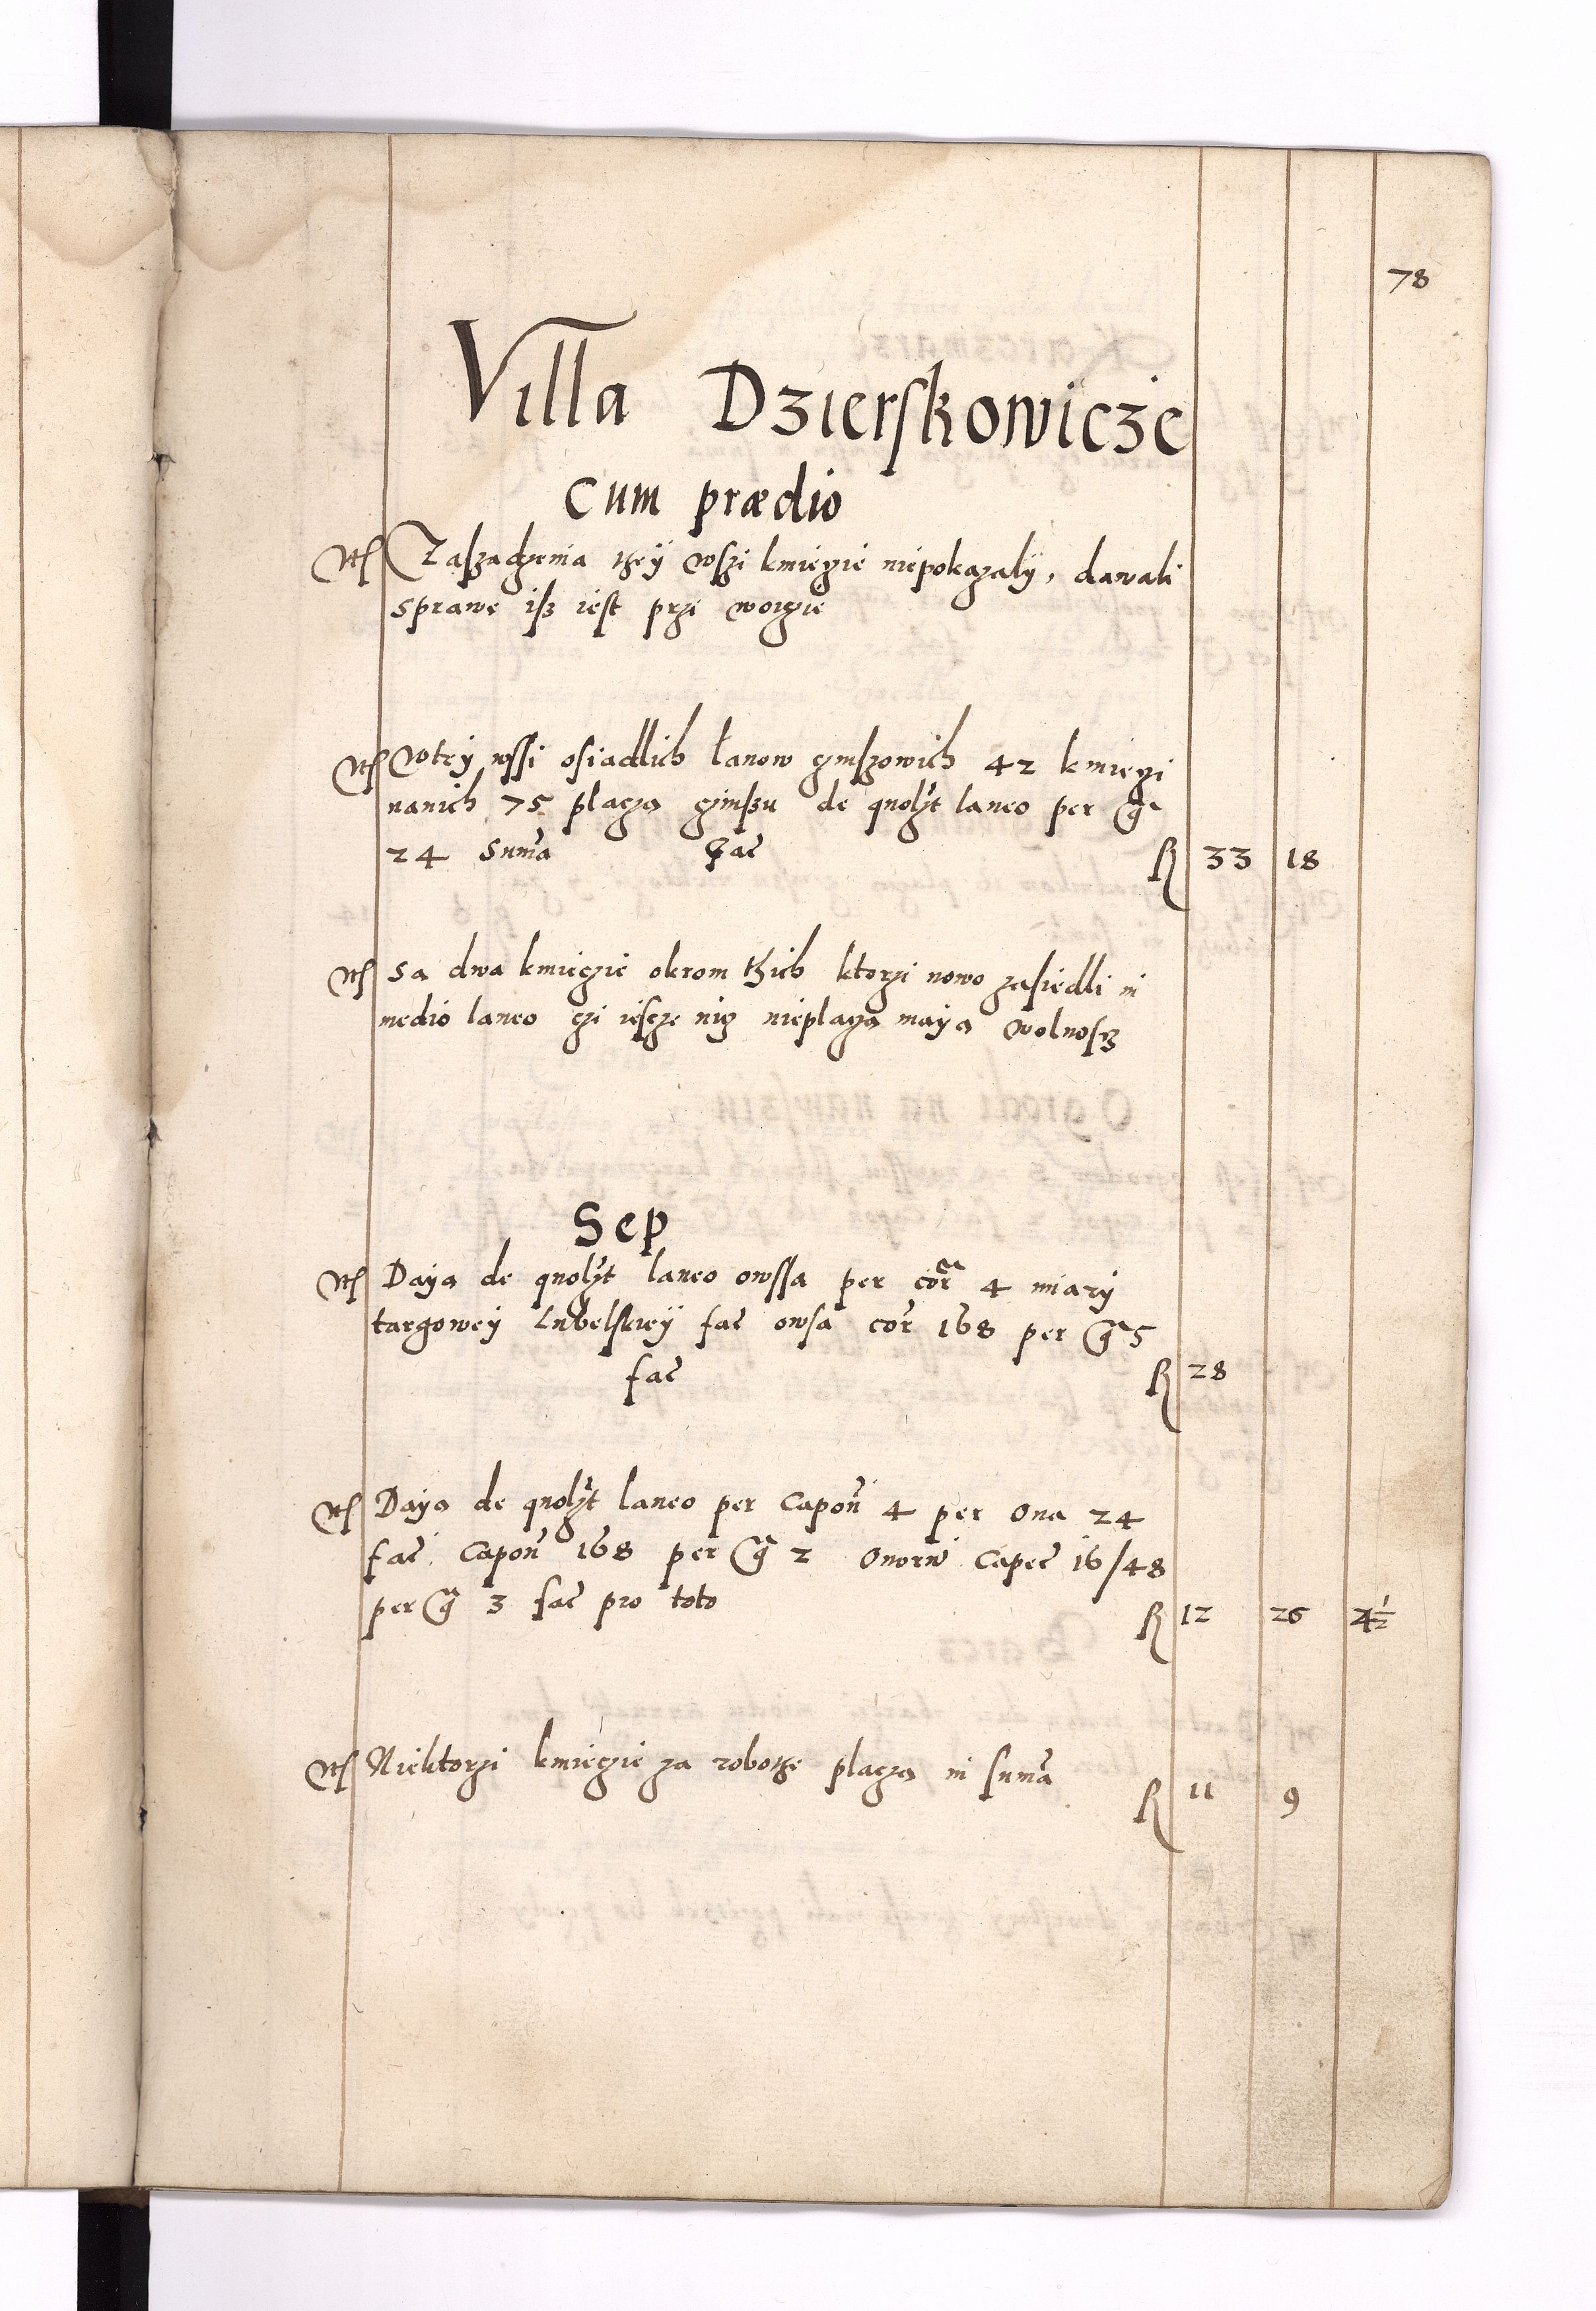 78
Villa Dzierskowicze
Cum prædio
Itē Zaszadzenia tzey wszi kmiecie niepokazaly, dawali
sprawe isz iest przi woicie
Itē Wtzy wssi osiadlich łanow czinszowich 42 kmieczi
nanich 75 placza czinszu de quolꝫt laneo per gͬ
24 Sum̃a fac̃ R 33 18
Itē Sa dwa kmieczie okrom tzich ktorzi nowo zasiedli in
medio laneo czi iescze nicz nieplacza maya wolnoscz
Sep
Itē Daya de quolꝫt laneo owssa per corᵃ 4 miary
targowey Lubelskiey fac̃ owsa cor̃ 168 per gͬ 5
fac̃ R 28
Itē Daya de quolꝫt laneo per Capoñ 4 per Oua 24
fac̃ Capoñ 168 per gͬ 2 Ouorũ Capec̃ 16/48
per gͬ 3 fac̃ pro toto R 12 26 7½
Itē Niektorzi kmieczie za robotze placza in sum̃a R 11 9